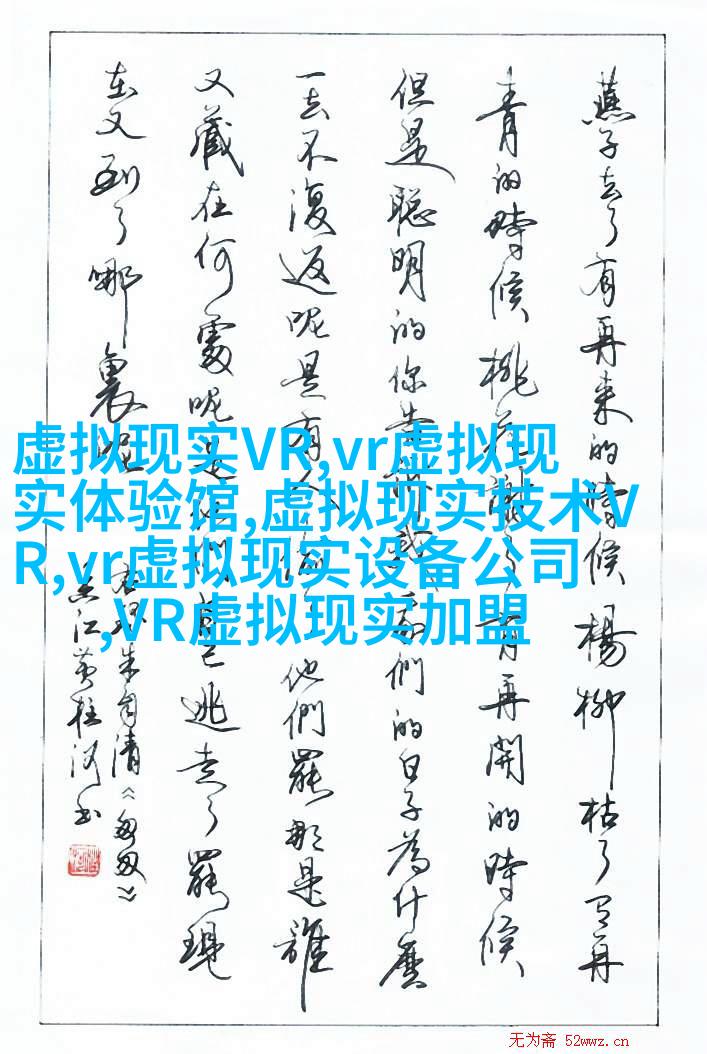 燕子去了有再来的時候楊柳枯了有再
青的時候桃花謝了有再開的時候
但是聪明的你告訴我我們的日子為什麼
一去不復返呢是有人偷了他們罷那是誰
又藏在何處呢是他們自己逃走了罷現
在又到了哪裏呢
朱自清《匆匆》
江黄桂河书
虚拟现实VR,vr虚拟现
实体验馆,虚拟现实技术V
R,vr虚拟现实设备公司
,VR虚拟现实加盟
无为斋 52wwz.cn